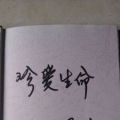 珍爱生命